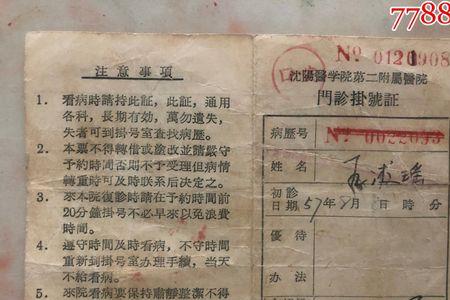 7788
注意事項
1. 看病時請持此証，此証，通用
各科，長期有効，萬勿遺失，
失者可到掛号室查找病歷。
2. 本票不得轉借或塗改並請嚴守
予約時間否則不予受理但病情
轉重時可及時联系后決定之。
3. 來本院復診時請在予約時間前
20分鐘掛号不必早來以免浪費
時間。
4. 遵守時間及時看病，不守時間
重新到掛号室办理手續，當天
不給看病。
5. 來院看病要保持肅靜整潔不得
№ 0120908
沈陽医学院第二附屬醫院
門診掛號証
病歷号 № 0022033
姓名
初診日期 57年8月 日 時 分
優待
办法